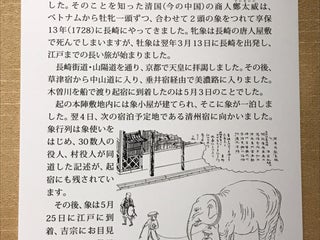 した。そのことを知った清国(今の中国)の商人鄭太威は、
ベトナムから牡牝一頭ずつ、合わせて2頭の象をつれて享保
13年(1728)に長崎にやってきました。牝象は長崎の唐人屋敷
で死んでしまいますが、牡象は翌年3月13日に長崎を出発し、
江戸までの長い旅が始まりました。
長崎街道・山陽道を通り、京都で天皇に拝謁しました。その後、
草津宿から中山道に入り、垂井宿経由で美濃路に入りました。
木曽川を船で渡り起宿に到着したのは5月3日のことでした。
起の本陣敷地内には象小屋が建てられ、そこに象が一泊しま
した。翌4日、次の宿泊予定地である清州宿に向かいました。
象行列は象使いを
はじめ、30数人の
役人、村役人が同
道した記述が、起
宿にも残されてい
ます。
その後、象は5月
25日に江戸に到
着、吉宗にお目見